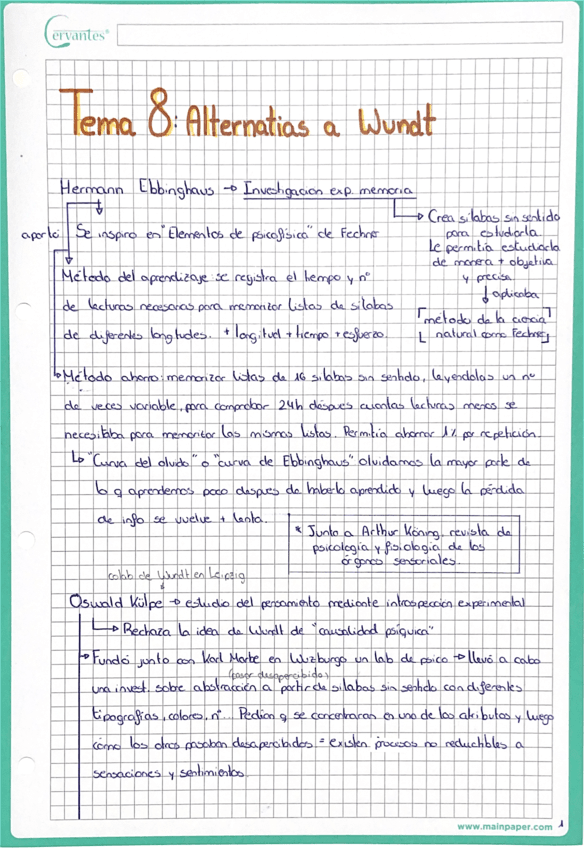 Cervantes®
Tema 8: Alternatias a Wundt
Hermann Ebbinghaus → Investigacion exp. memoria
→ Crea silabas sin sentido
para estudiarla
Le permitia estudiarla
de manera + objetiva
y precisa
↓ aplicaba
método de la ciencia
natural como Fechner
aportó
Se inspiro en "Elementos de psicofísica" de Fechner
Método del aprendizaje: se registra el tiempo y nº
de lecturas necesarias para memorizar listas de silabas
de diferentes longitudes. + longitud + tiempo + esfuerzo.
Método ahorro: memorizar listas de 16 silabas sin sentido, leyendolas un nº
de veces variable, para comprobar 24h después cuantas lecturas menos se
necesitaba para memorizar las mismas listas. Permitia ahorrar 1% por repetición.
↳ "Curva del olvido" o "curva de Ebbinghaus" olvidamos la mayor parte de
lo q aprendemos poco despues de haberlo aprendido y luego la pérdida
de info se vuelve + lenta.
* Junto a Arthur Köning, revista de
psicologia y fisiologia de los
órganos sensoriales.
colab de Wundt en Leipzig
Oswald Külpe → estudio del pensamiento mediante introspeccion experimental
→ Rechaza la idea de Wundt de "causalidad psíquica"
→ Fundó junto con Karl Marbe en Wuzburgo un lab de psico → llevó a cabo
(pasar desapercibido)
una invest. sobre abstracción a partir de silabas sin sentido con diferentes
tipografías, colores, nº... Pedian q se concentraran en uno de los atributos y luego
cómo los otros pasaban desapercibidos = existen procesos no reductibles a
sensaciones y sentimientos.
www.mainpaper.com
1